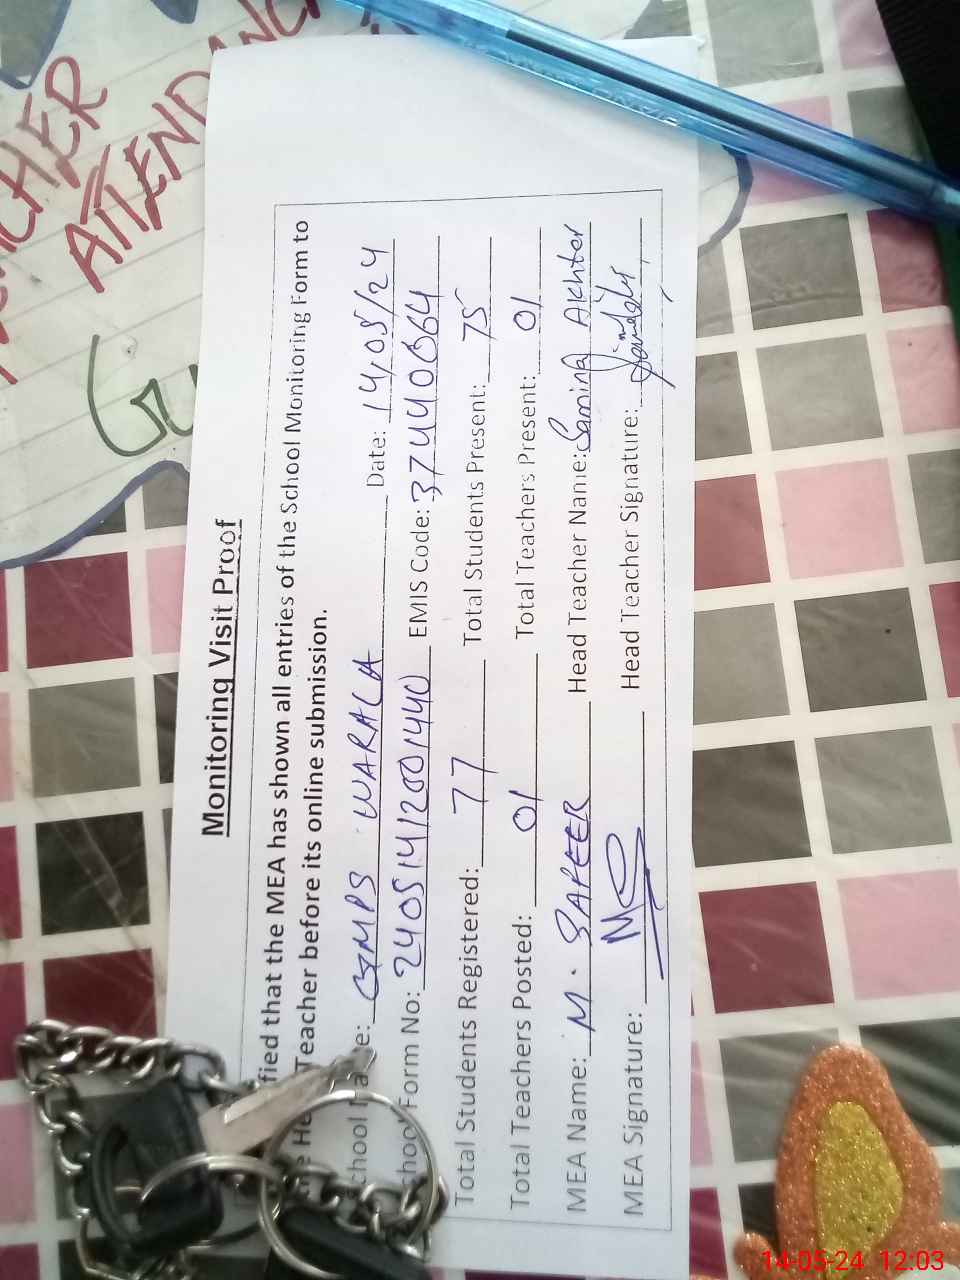 CHER
ATTENDANC
Monitoring Visit Proof
fied that the MEA has shown all entries of the School Monitoring Form to
Teacher before its online submission.
GMPS WARALA Date: 14/05/24
Form No: 240514121001440 EMIS Code: 37440064
Total Students Registered: 77 Total Students Present: 75
Total Teachers Posted: 01 Total Teachers Present: 01
MEA Name: M. SAFEER Head Teacher Name: Samina Akhter
MEA Signature: Head Teacher Signature:
PIANO
14-05-24 12:03